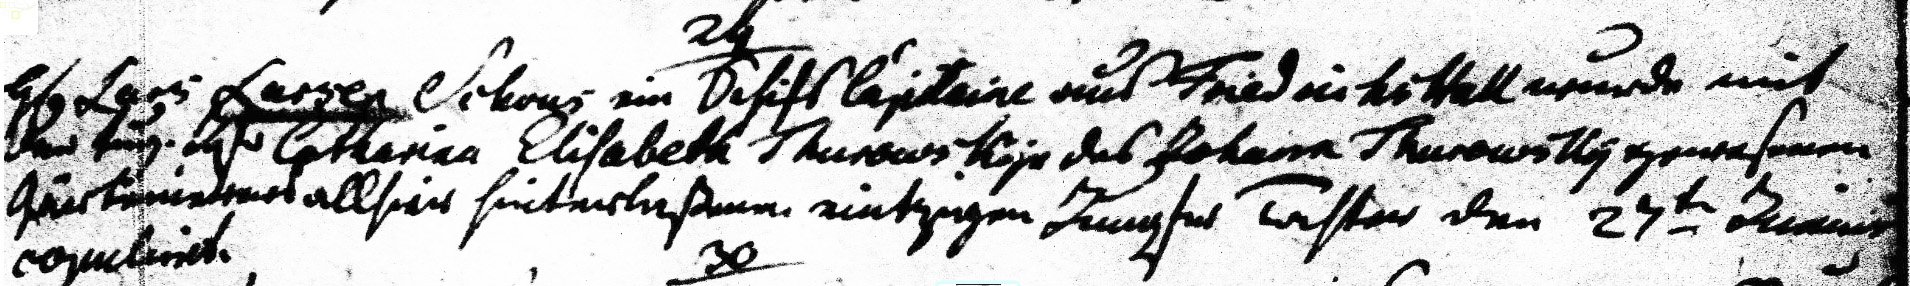 29
Hr Lars Larsen Schous ein Schifs Capitaine aus Friedrichshall wurde mit
der tug. Jgfr Catharina Elisabeth Thurowskyn des Johann Thurowsky gewesenen
allhier hinterlaßenen eintzigen Jungfer Tochter den 27ten Junius
copuliret.
30